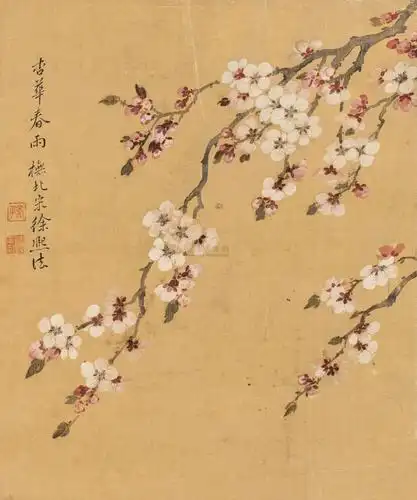 杏華春雨橅北宋徐熙法